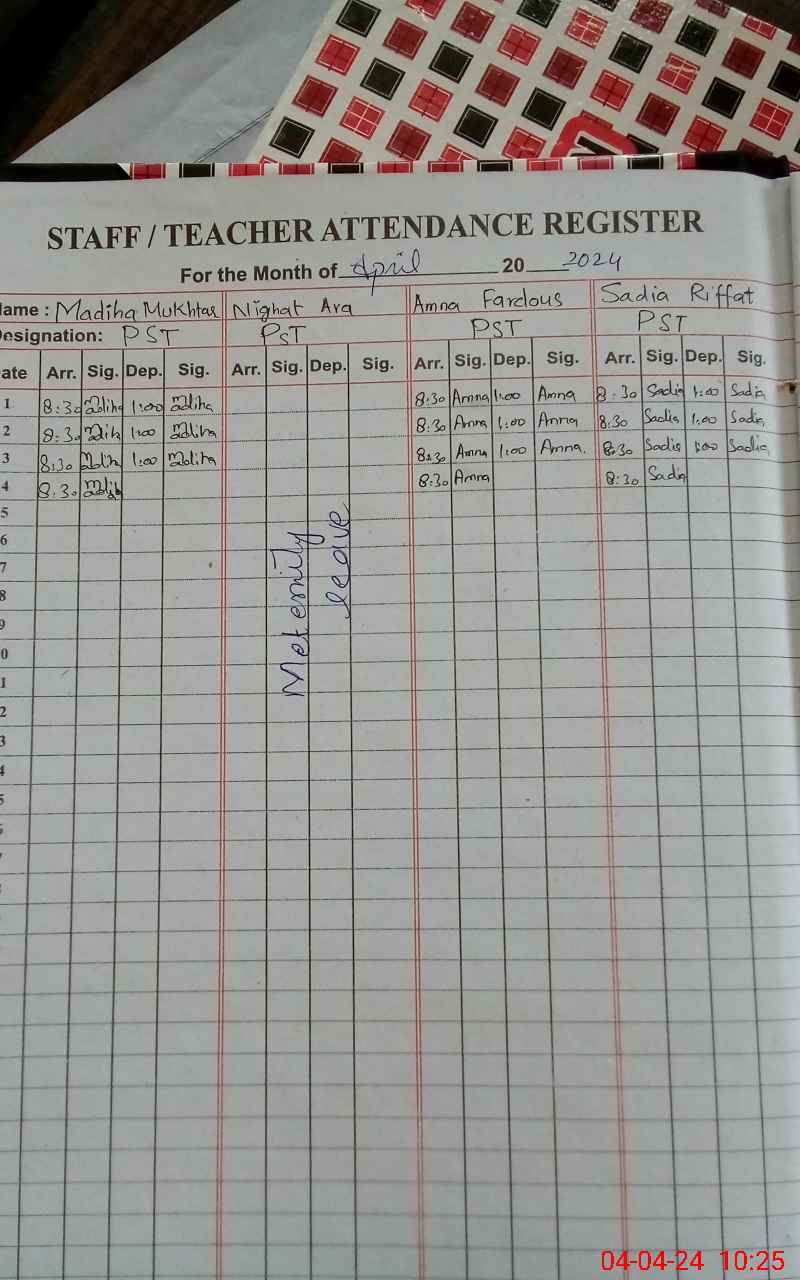 STAFF / TEACHER ATTENDANCE REGISTER
For the Month of April 20 2024
Name : Madiha Mukhtar Nighat Ara Amna Fardous Sadia Riffat
Designation: PST PST PST PST
ate Arr. Sig. Dep. Sig. Arr. Sig. Dep. Sig. Arr. Sig. Dep. Sig. Arr. Sig. Dep. Sig.
1 8:30 Madiha 1:00 Madiha 8:30 Amna 1:00 Amna 8:30 Sadia 1:00 Sadia
2 8:30 Madiha 1:00 Madiha 8:30 Amna 1:00 Amna 8:30 Sadia 1:00 Sadia
3 8:30 Madiha 1:00 Madiha 8:30 Amna 1:00 Amna. 8:30 Sadia 1:00 Sadia
4 8:30 Madiha 8:30 Amna 8:30 Sadia
5
6
7
8
9
0
1
2
3
4
5
Meternity
leave
04-04-24 10:25